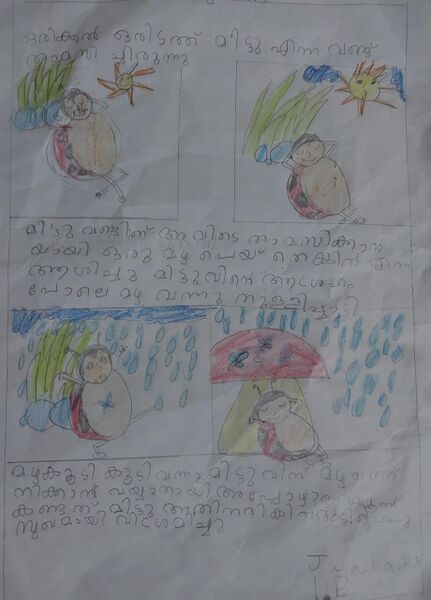 ഒരിക്കൽ ഒരിടത്ത് മിട്ടു എന്ന വണ്ട്
താമസിച്ചിരുന്നു
മിട്ടു വണ്ടിന് അവിടെ താമസിക്കാൻ
യായി ഒരു മഴ പെയ്
ആശിച്ചു മിട്ടുവിന്റെ ആഗ്രഹം
പോലെ മഴ വന്നു തുള്ളിച്ചാടി
മഴകൂടി കൂടി വന്നു മിട്ടുവിന് മഴയത്ത്
നിക്കാൻ വയ്യാതായി അപ്പോഴാണ്
കണ്ടത് മിട്ടു അതിനരികിൽ
സുഖമായി വിശ്രമിച്ചു